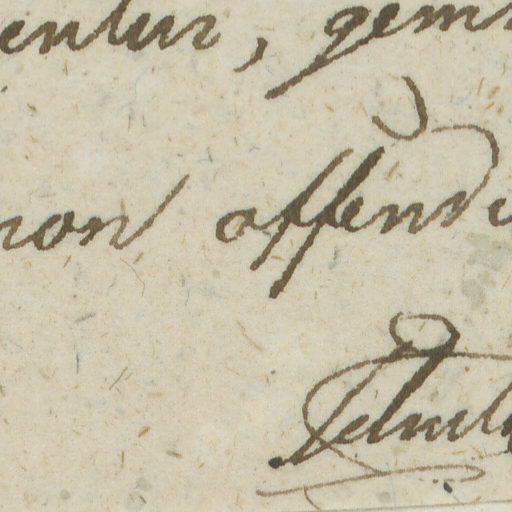 entur, gem
non offend